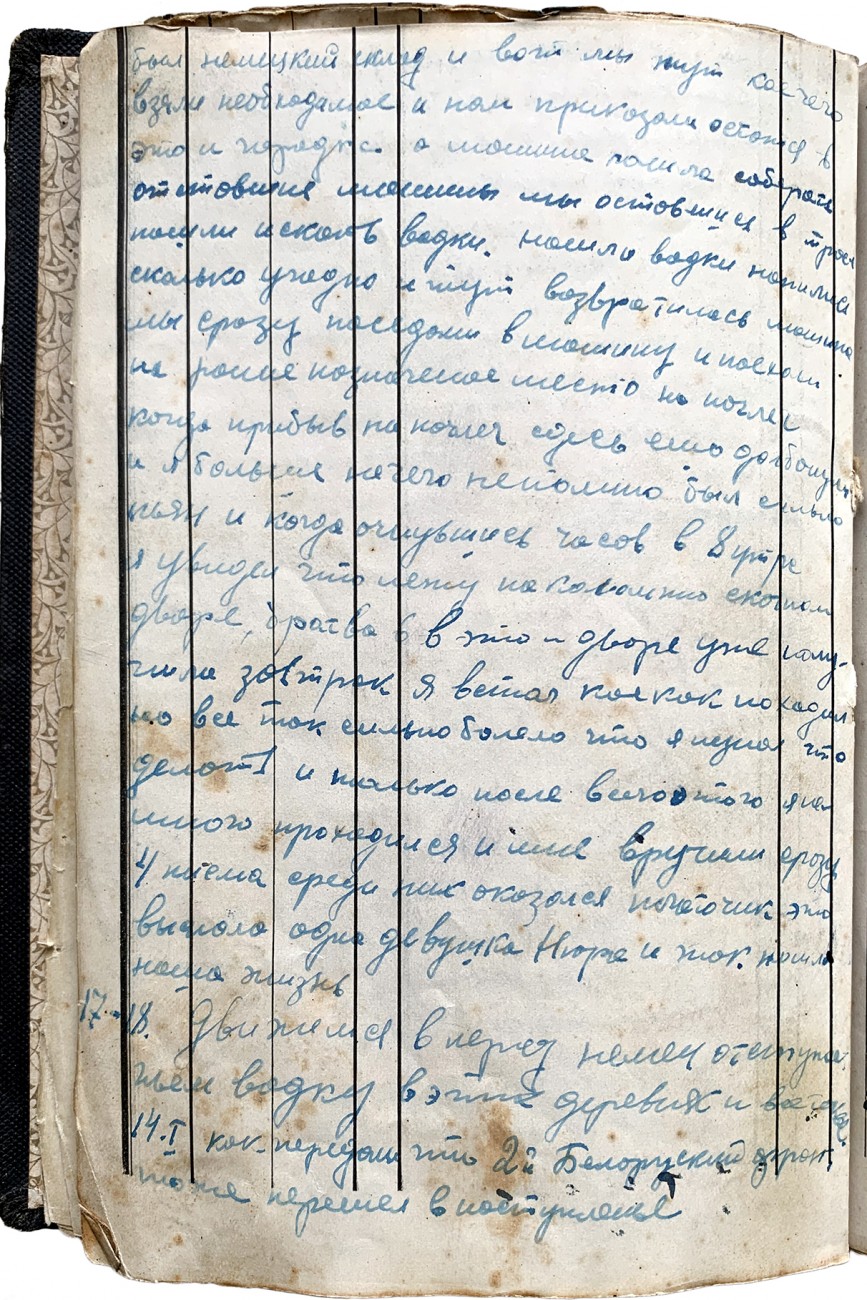 был немецкий склад и вот мы тут коечего
взяли необходимое и нам приказали остатся в
а машина пошла соберать
отстовшие машины мы оставшися в трое
пошли искать водки. нашли водки напились
сколько угодно и тут возвратилась машина
мы сразу поседали в машину и поехали
на ранее назначеное место на ночлег
когда прибыв на ночлег здесь ешо
и я больше нечего непомню был сильно
пьян и когда очнувшись часов в 8 утра
я увидел что лежу на скотном
дворе, братва в это м дворе уже полу-
чила завтрак я встал коекак походил
но все так сильно болело что я незнал что
делать и только после всего этого я не
много проходился и мне вручили сразу
4 писма среди них оказался это
выслала одна девушка Нюра и так пошла
наша жизнь
17-18. Движемся в перед немец отступает
пьем водку в этих деревнях и все
14.I как передали что 2й Белоруский фронт
тоже перешел в поступленье